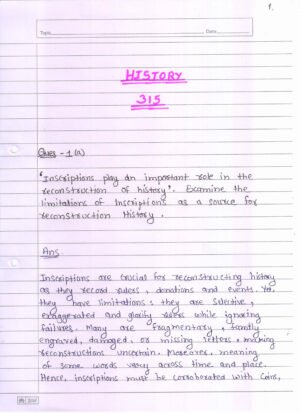 1.
Topic
Date
HISTORY
315
Ques - 1 (a)
"Inscriptions play an important role in the
reconstruction of history". Examine the
limitations of Inscriptions as a source for
reconstruction History.
Ans
Inscriptions are crucial for reconstructing history
as they record rulers, donations and events. Yet,
they have limitations: they are selective,
exaggerated and glorify rulers while ignoring
failures. Many are fragmentary, faintly
engraved, damaged, or missing letters, making
reconstructions uncertain. Moreover, meaning
of some words vary across time and place.
Hence, inscriptions must be corroborated with Coins,